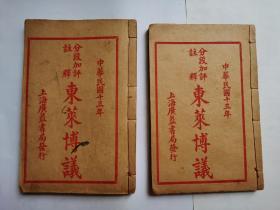 中華民國十三年
分段加評
註釋
東萊博議
上海廣益書局發行
中華民國十三年
分段加評
註釋
東萊博議
上海廣益書局發行